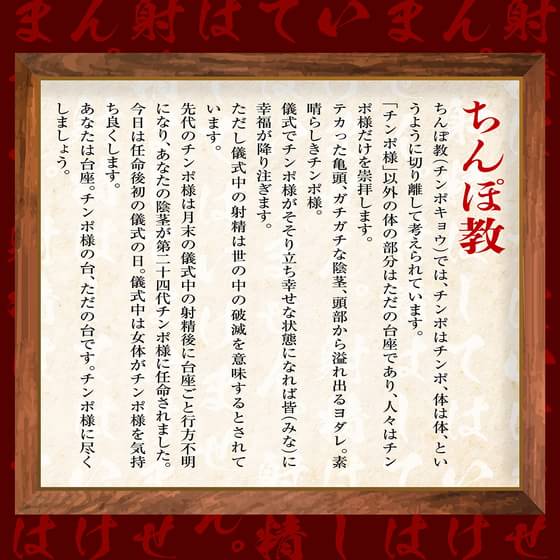 まん射はてい
ちんぽ教
ちんぽ教（チンポキョウ）では、チンポはチンポ、体は体、とい
うように切り離して考えられています。
「チンポ様」以外の体の部分はただの台座であり、人々はチン
ポ様だけを崇拝します。
テカった亀頭、ガチガチな陰茎、頭部から溢れ出るヨダレ。素
晴らしきチンポ様。
儀式でチンポ様がそそり立ち幸せな状態になれば皆（みな）に
幸福が降り注ぎます。
ただし儀式中の射精は世の中の破滅を意味するとされて
います。
先代のチンポ様は月末の儀式中の射精後に台座ごと行方不明
になり、あなたの陰茎が第二十四代チンポ様に任命されました。
今日は任命後初の儀式の日。儀式中は女体がチンポ様を気持
ち良くします。
あなたは台座。チンポ様の台、ただの台です。チンポ様に尽く
しましょう。
はけせん。精しはけせ